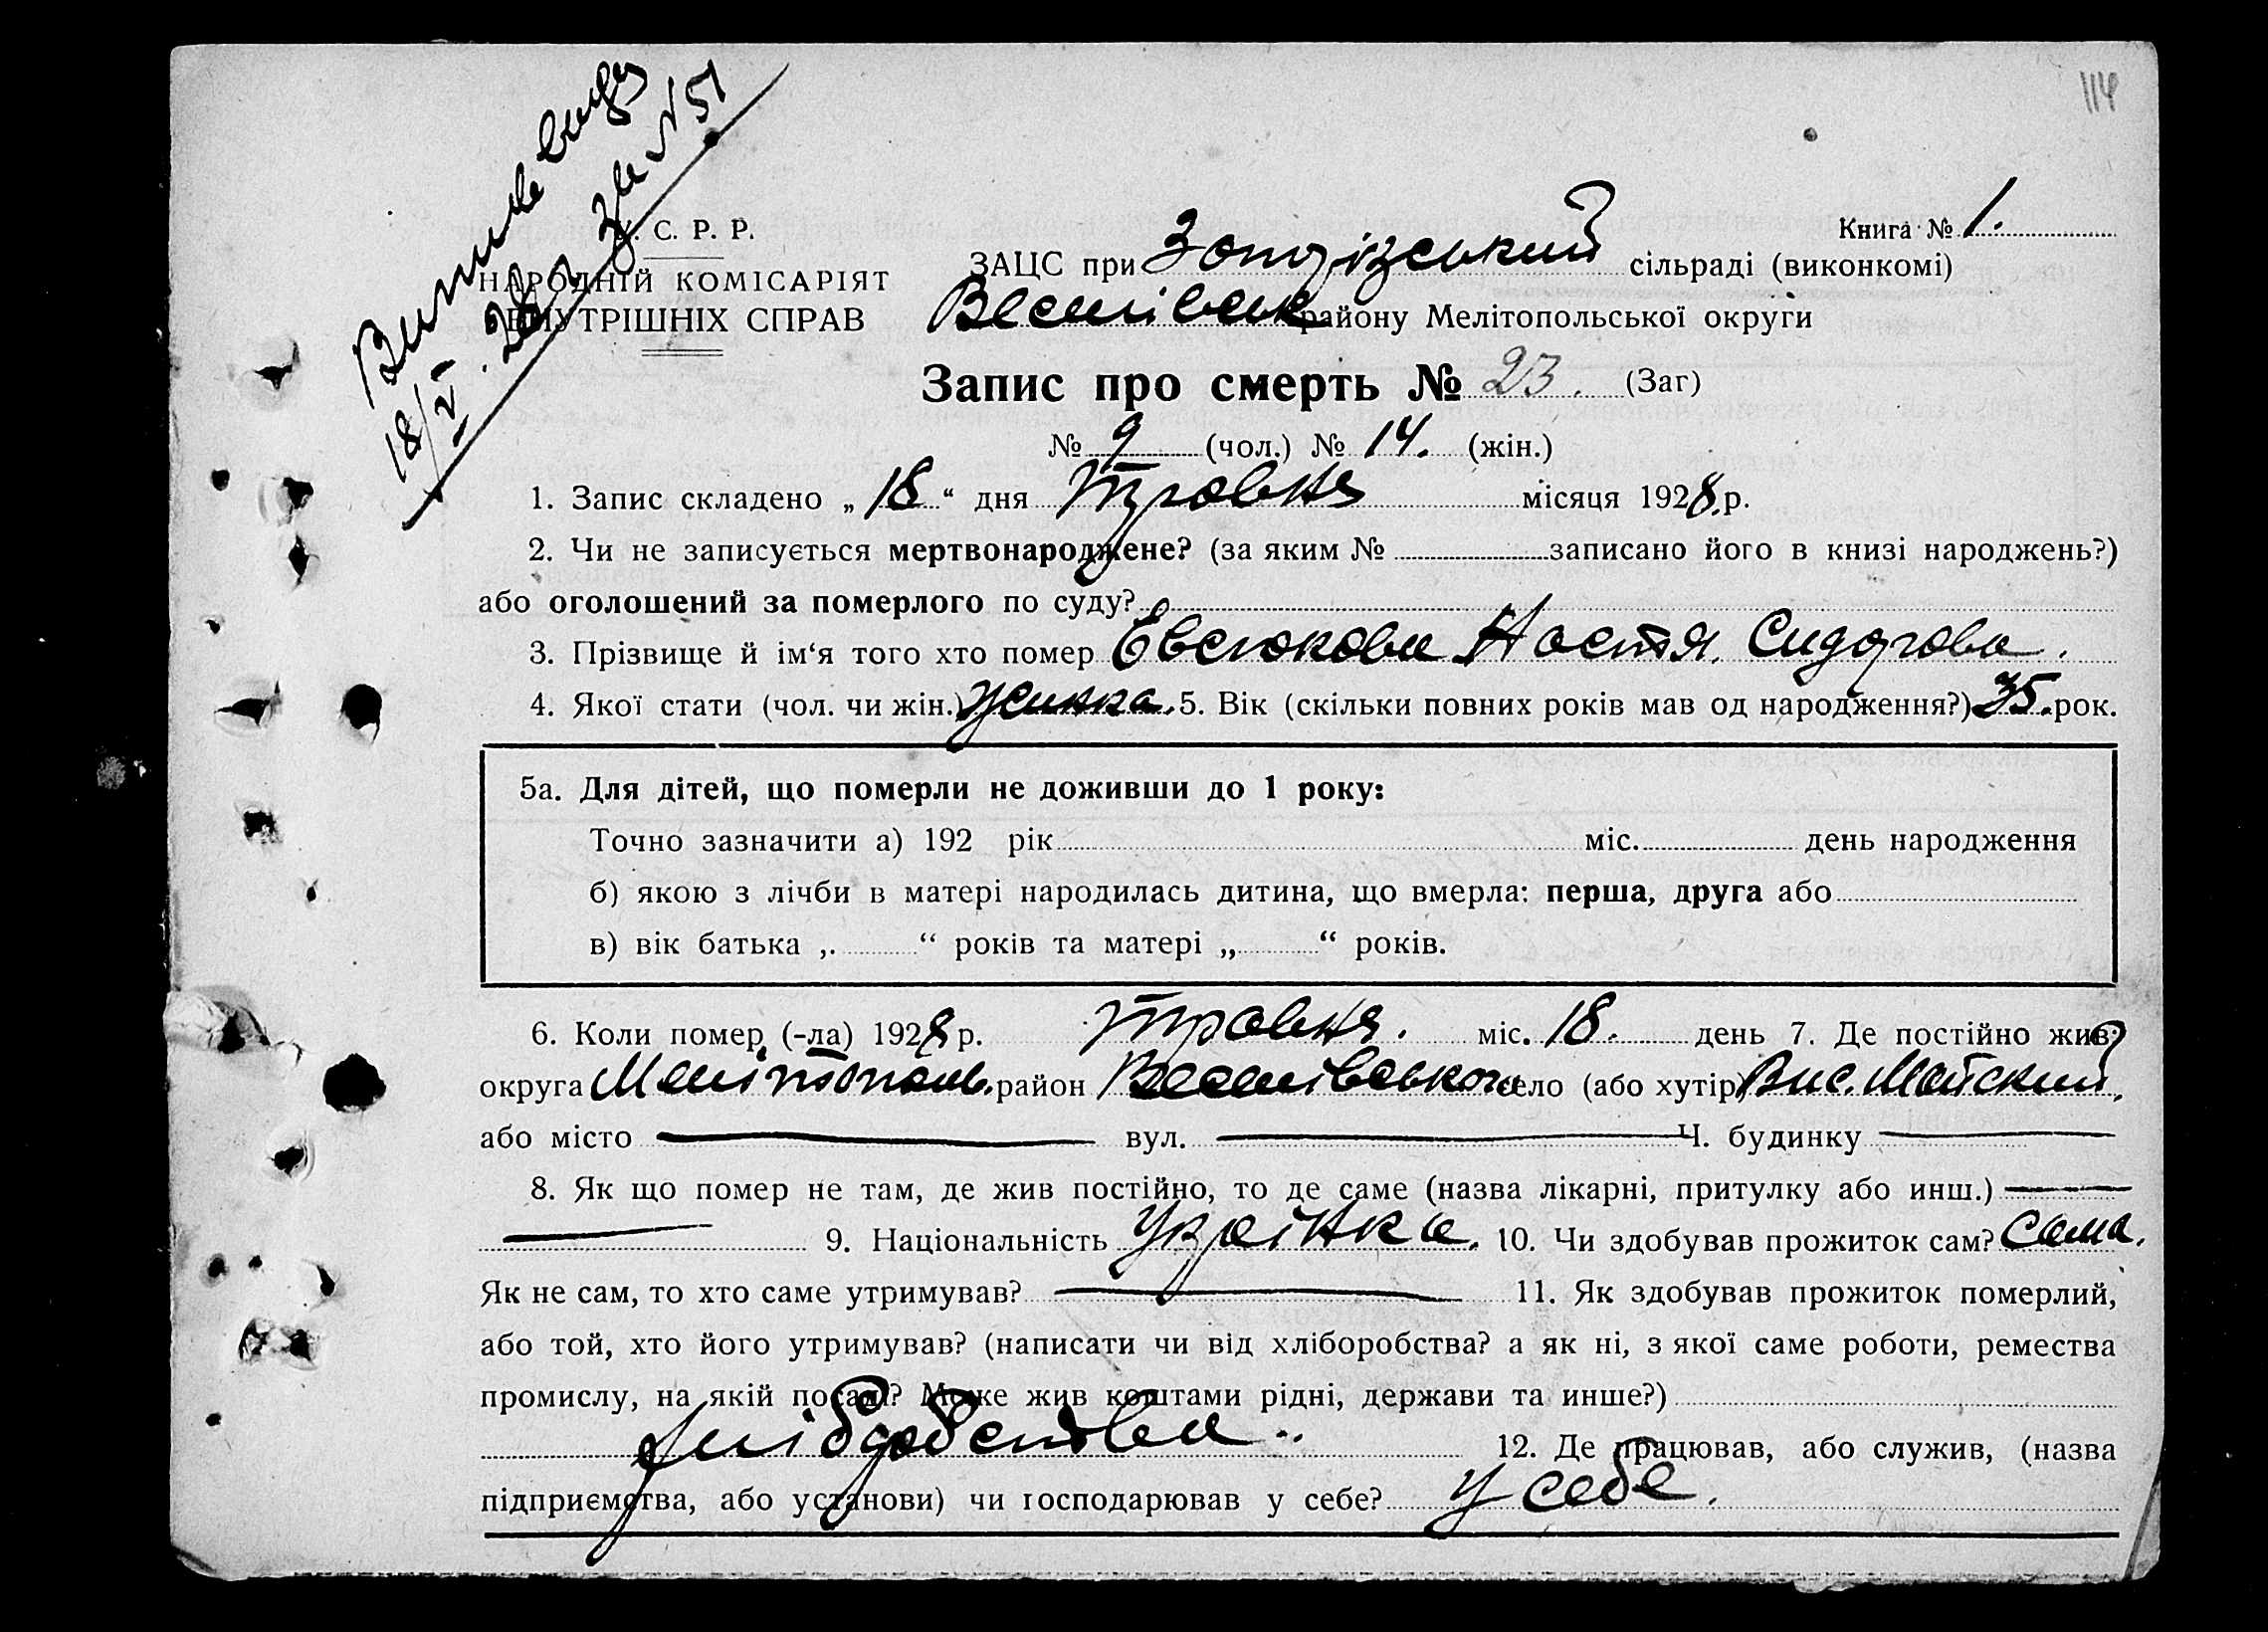 114
Витяг видан
18/V 28 р. за №51
С. Р. Р.
НАРОДНІЙ КОМІСАРІЯТ
ВНУТРІШНІХ СПРАВ
Книга № 1.
ЗАЦС при сільраді (виконкомі)
Веселівськ району Мелітопольської округи
Запис про смерть № 23. (Заг)
№ 9 (чол.) № 14. (жін.)
1. Запис складено „ 18 “ дня Травня місяця 1928.р.
2. Чи не записується мертвонароджене? (за яким № записано його в книзі народжень?)
або оголошений за померлого по суду?
3. Прізвище й ім‘я того хто помер Евсюкова Настя Сидорова.
4. Якої стати (чол. чи жін.) жинка. 5. Вік (скільки повних років мав од народження?) 35. рок.
5а. Для дітей, що померли не доживши до 1 року:
Точно зазначити а) 192 рік міс. день народження
б) якою з лічби в матері народилась дитина, що вмерла: перша, друга або
в) вік батька „ “ років та матері „ “ років.
6. Коли помер (-ла) 1928 р. Травня. міс. 18. день 7. Де постійно жив?
округа Мелітополь. район Веселівського село (або хутір) Вис. Майский.
або місто вул. Ч. будинку
8. Як що помер не там, де жив постійно, то де саме (назва лікарні, притулку або инш.)
9. Національність Українка. 10. Чи здобував прожиток сам? Сама.
Як не сам, то хто саме утримував? 11. Як здобував прожиток померлий,
або той, хто його утримував? (написати чи від хліборобства? а як ні, з якої саме роботи, ремества
промислу, на якій посаді? Може жив коштами рідні, держави та инше?)
12. Де працював, або служив, (назва
підприємства, або установи) чи господарював у себе? У себе.